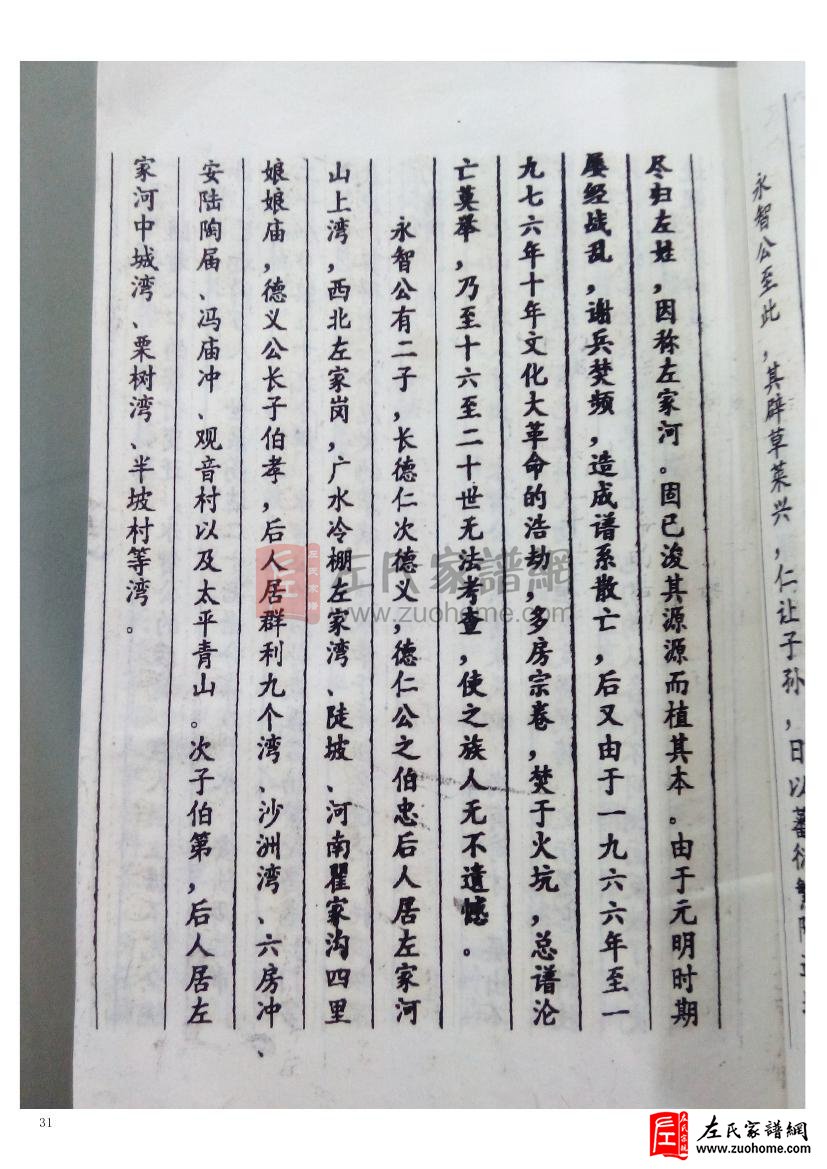 永智公至此，其辟草莱兴，仁让子孙，日以蕃衍繁
尽归左姓，因称左家河。固已浚其源源而植其本。由于元明时期
屡经战乱，谢兵焚频，造成谱系散亡，后又由于一九六六年至一
九七六年十年文化大革命的浩劫，多房宗卷，焚于火坑，总谱沦
亡莫举，乃至十六至二十世无法考查，使之族人无不遗憾。
永智公有二子，长德仁次德义，德仁公之伯忠后人居左家河
山上湾，西北左家岗，广水冷棚左家湾、陡坡、河南瞿家沟四里
娘娘庙，德义公长子伯孝，后人居群利九个湾、沙洲湾、六房冲、
安陆陶届、冯庙冲、观音村以及太平青山。次子伯第，后人居左
家河中城湾、栗树湾、半坡村等湾。
左氏家譜
左氏家譜網
www.zuohome.com
31
左氏家譜
左氏家譜網
www.zuohome.com